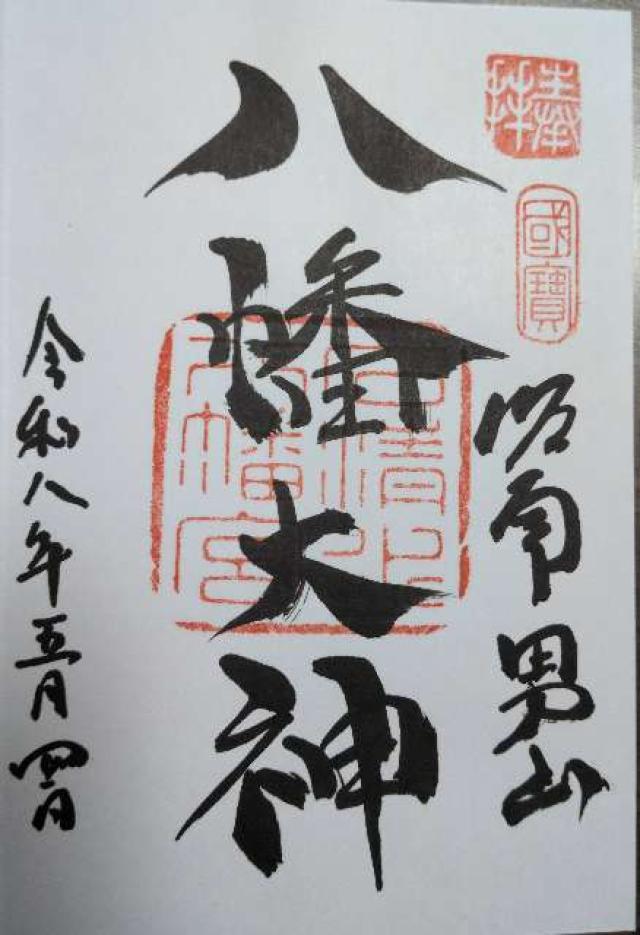 奉拝
國寶
男山
八幡大神
石清水
八幡宮
令和八年五月四日